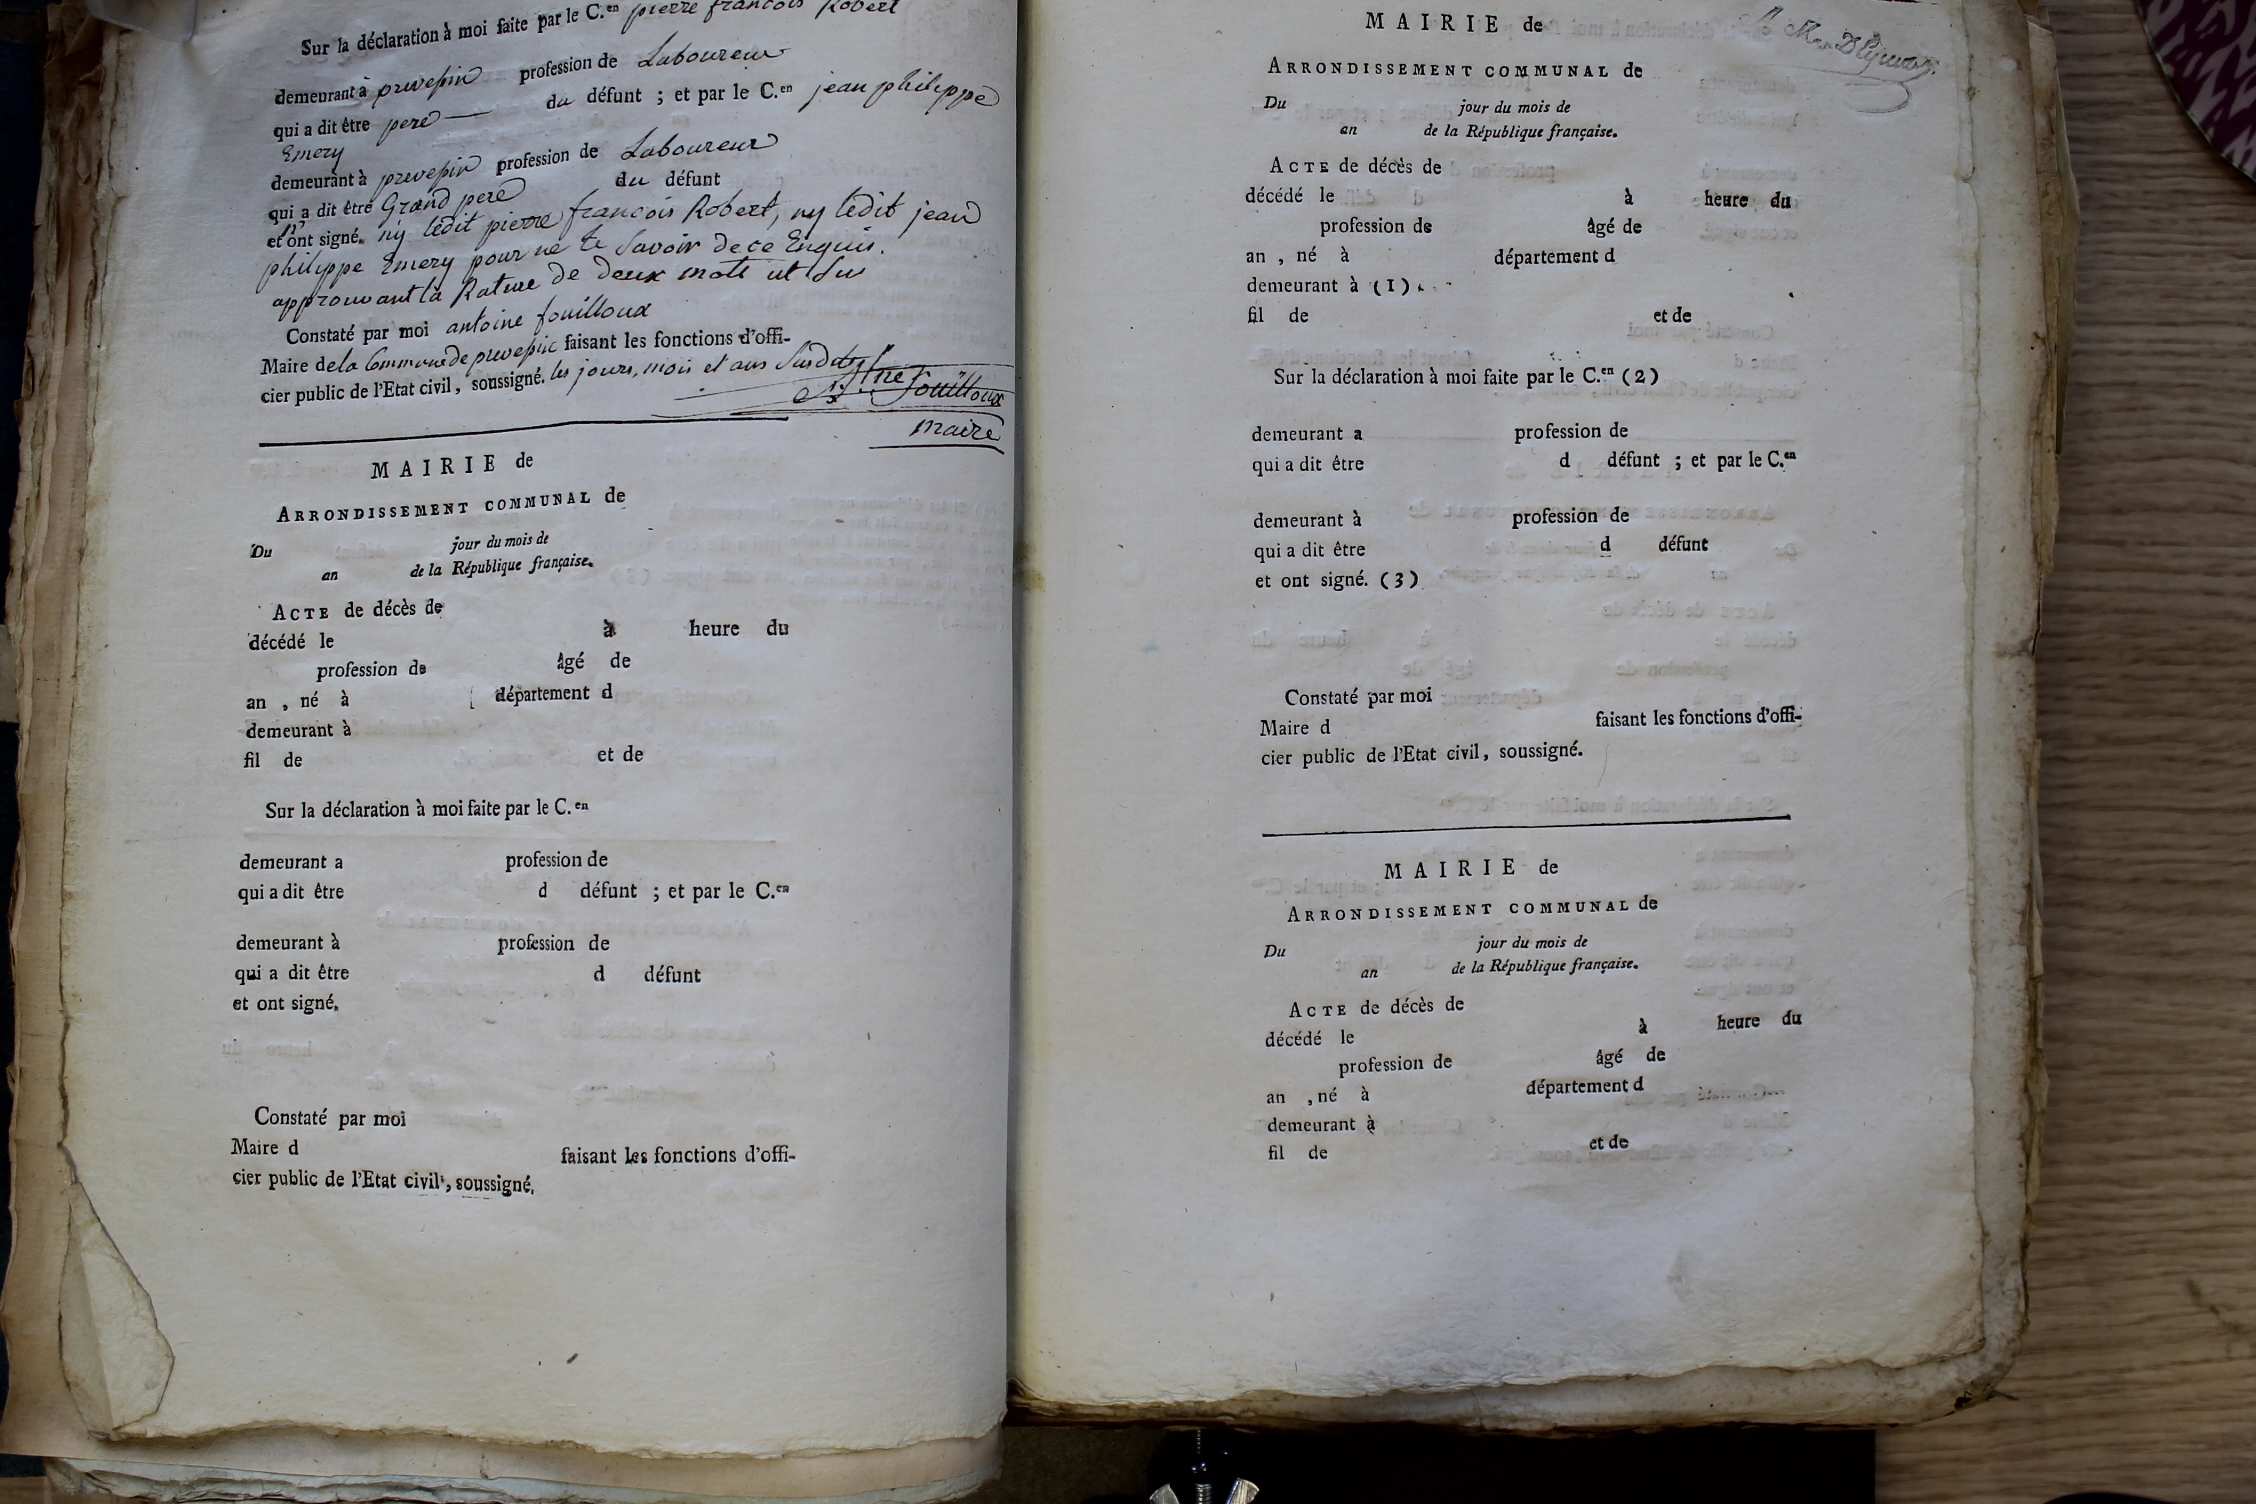 Sur la déclaration à moi faite par le C.en pierre francois Robert
demeurant à prevesin profession de Laboureur
qui a dit être pere du défunt ; et par le C.en jean philippe
Emery
demeurant à prevesin profession de Laboureur
qui a dit être Grand pere du défunt
et n'ont signé. ny ledit pierre francois Robert, ny ledit jean
philippe Emery pour ne le savoir de ce Enquis.
approuvant la Rature de deux mots
Constaté par moi antoine fouilloux
Maire de la Commune de prevesin faisant les fonctions d'offi-
cier public de l'Etat civil, soussigné. les jours, mois et ans Susdits
fouilloux
maire
MAIRIE de
ARRONDISSEMENT COMMUNAL de
Du jour du mois de
an de la République française.
ACTE de décès de
décédé le à heure du
profession de âgé de
an , né à département d
demeurant à
fil de et de
Sur la déclaration à moi faite par le C.en
demeurant a profession de
qui a dit être d défunt ; et par le C.en
demeurant à profession de
qui a dit être d défunt
et ont signé.
Constaté par moi
Maire d faisant les fonctions d'offi-
cier public de l'Etat civil, soussigné.
MAIRIE de
ARRONDISSEMENT COMMUNAL de
Du jour du mois de
an de la République française.
ACTE de décès de
décédé le à heure du
profession de âgé de
an , né à département d
demeurant à (1)
fil de et de
Sur la déclaration à moi faite par le C.en (2)
demeurant a profession de
qui a dit être d défunt ; et par le C.en
demeurant à profession de
qui a dit être d défunt
et ont signé. (3)
Constaté par moi
Maire d faisant les fonctions d'offi-
cier public de l'Etat civil, soussigné.
MAIRIE de
ARRONDISSEMENT COMMUNAL de
Du jour du mois de
an de la République française.
ACTE de décès de
décédé le à heure du
profession de âgé de
an , né à département d
demeurant à
fil de et de